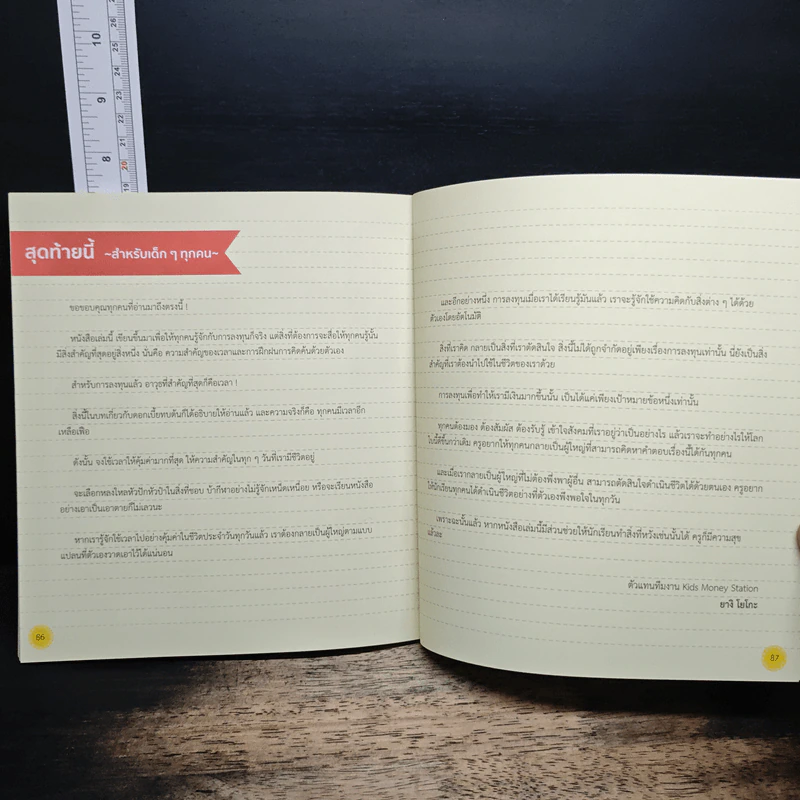 สุดท้ายนี้ ~สำหรับเด็ก ๆ ทุกคน~
ขอขอบคุณทุกคนที่อ่านมาถึงตรงนี้ !
หนังสือเล่มนี้ เขียนขึ้นมาเพื่อให้ทุกคนรู้จักกับการลงทุนก็จริง แต่สิ่งที่ต้องการจะสื่อให้ทุกคนรู้นั้น
มีสิ่งสำคัญที่สุดอยู่สิ่งหนึ่ง นั่นคือ ความสำคัญของเวลาและการฝึกฝนการคิดค้นด้วยตัวเอง
สำหรับการลงทุนแล้ว อาวุธที่สำคัญที่สุดก็คือเวลา !
สิ่งนี้ในบทเกี่ยวกับดอกเบี้ยทบต้นก็ได้อธิบายให้อ่านแล้ว และความจริงก็คือ ทุกคนมีเวลาอีก
เหลือเฟือ
ดังนั้น จงใช้เวลาให้คุ้มค่ามากที่สุด ให้ความสำคัญในทุก ๆ วันที่เรามีชีวิตอยู่
จะเลือกหลงใหลหัวปักหัวปำในสิ่งที่ชอบ บ้ากีฬาอย่างไม่รู้จักเหน็ดเหนื่อย หรือจะเรียนหนังสือ
อย่างเอาเป็นเอาตายก็ไม่เลวนะ
หากเรารู้จักใช้เวลาไปอย่างคุ้มค่าในชีวิตประจำวันทุกวันแล้ว เราต้องกลายเป็นผู้ใหญ่ตามแบบ
แปลนที่ตัวเองวาดเอาไว้ได้แน่นอน
86
และอีกอย่างหนึ่ง การลงทุนเมื่อเราได้เรียนรู้มันแล้ว เราจะรู้จักใช้ความคิดกับสิ่งต่าง ๆ ได้ด้วย
ตัวเองโดยอัตโนมัติ
สิ่งที่เราคิด กลายเป็นสิ่งที่เราตัดสินใจ สิ่งนี้ไม่ได้ถูกจำกัดอยู่เพียงเรื่องการลงทุนเท่านั้น นี่ยังเป็นสิ่ง
สำคัญที่เราต้องนำไปใช้ในชีวิตของเราด้วย
การลงทุนเพื่อทำให้เรามีเงินมากขึ้นนั้น เป็นได้แค่เพียงเป้าหมายข้อหนึ่งเท่านั้น
ทุกคนต้องมอง ต้องสัมผัส ต้องรับรู้ เข้าใจสังคมที่เราอยู่ว่าเป็นอย่างไร แล้วเราจะทำอย่างไรให้โลก
ใบนี้ดีขึ้นกว่าเดิม ครูอยากให้ทุกคนกลายเป็นผู้ใหญ่ที่สามารถคิดหาคำตอบเรื่องนี้ได้กันทุกคน
และเมื่อเรากลายเป็นผู้ใหญ่ที่ไม่ต้องพึ่งพาผู้อื่น สามารถตัดสินใจดำเนินชีวิตได้ด้วยตนเอง ครูอยาก
ให้นักเรียนทุกคนได้ดำเนินชีวิตอย่างที่ตัวเองพึงพอใจในทุกวัน
เพราะฉะนั้นแล้ว หากหนังสือเล่มนี้มีส่วนช่วยให้นักเรียนทำสิ่งที่หวังเช่นนั้นได้ ครูก็มีความสุข
แล้วละ
ตัวแทนทีมงาน Kids Money Station
ยางิ โยโกะ
87
10
9
8
26
25
24
23
22
21
20
19